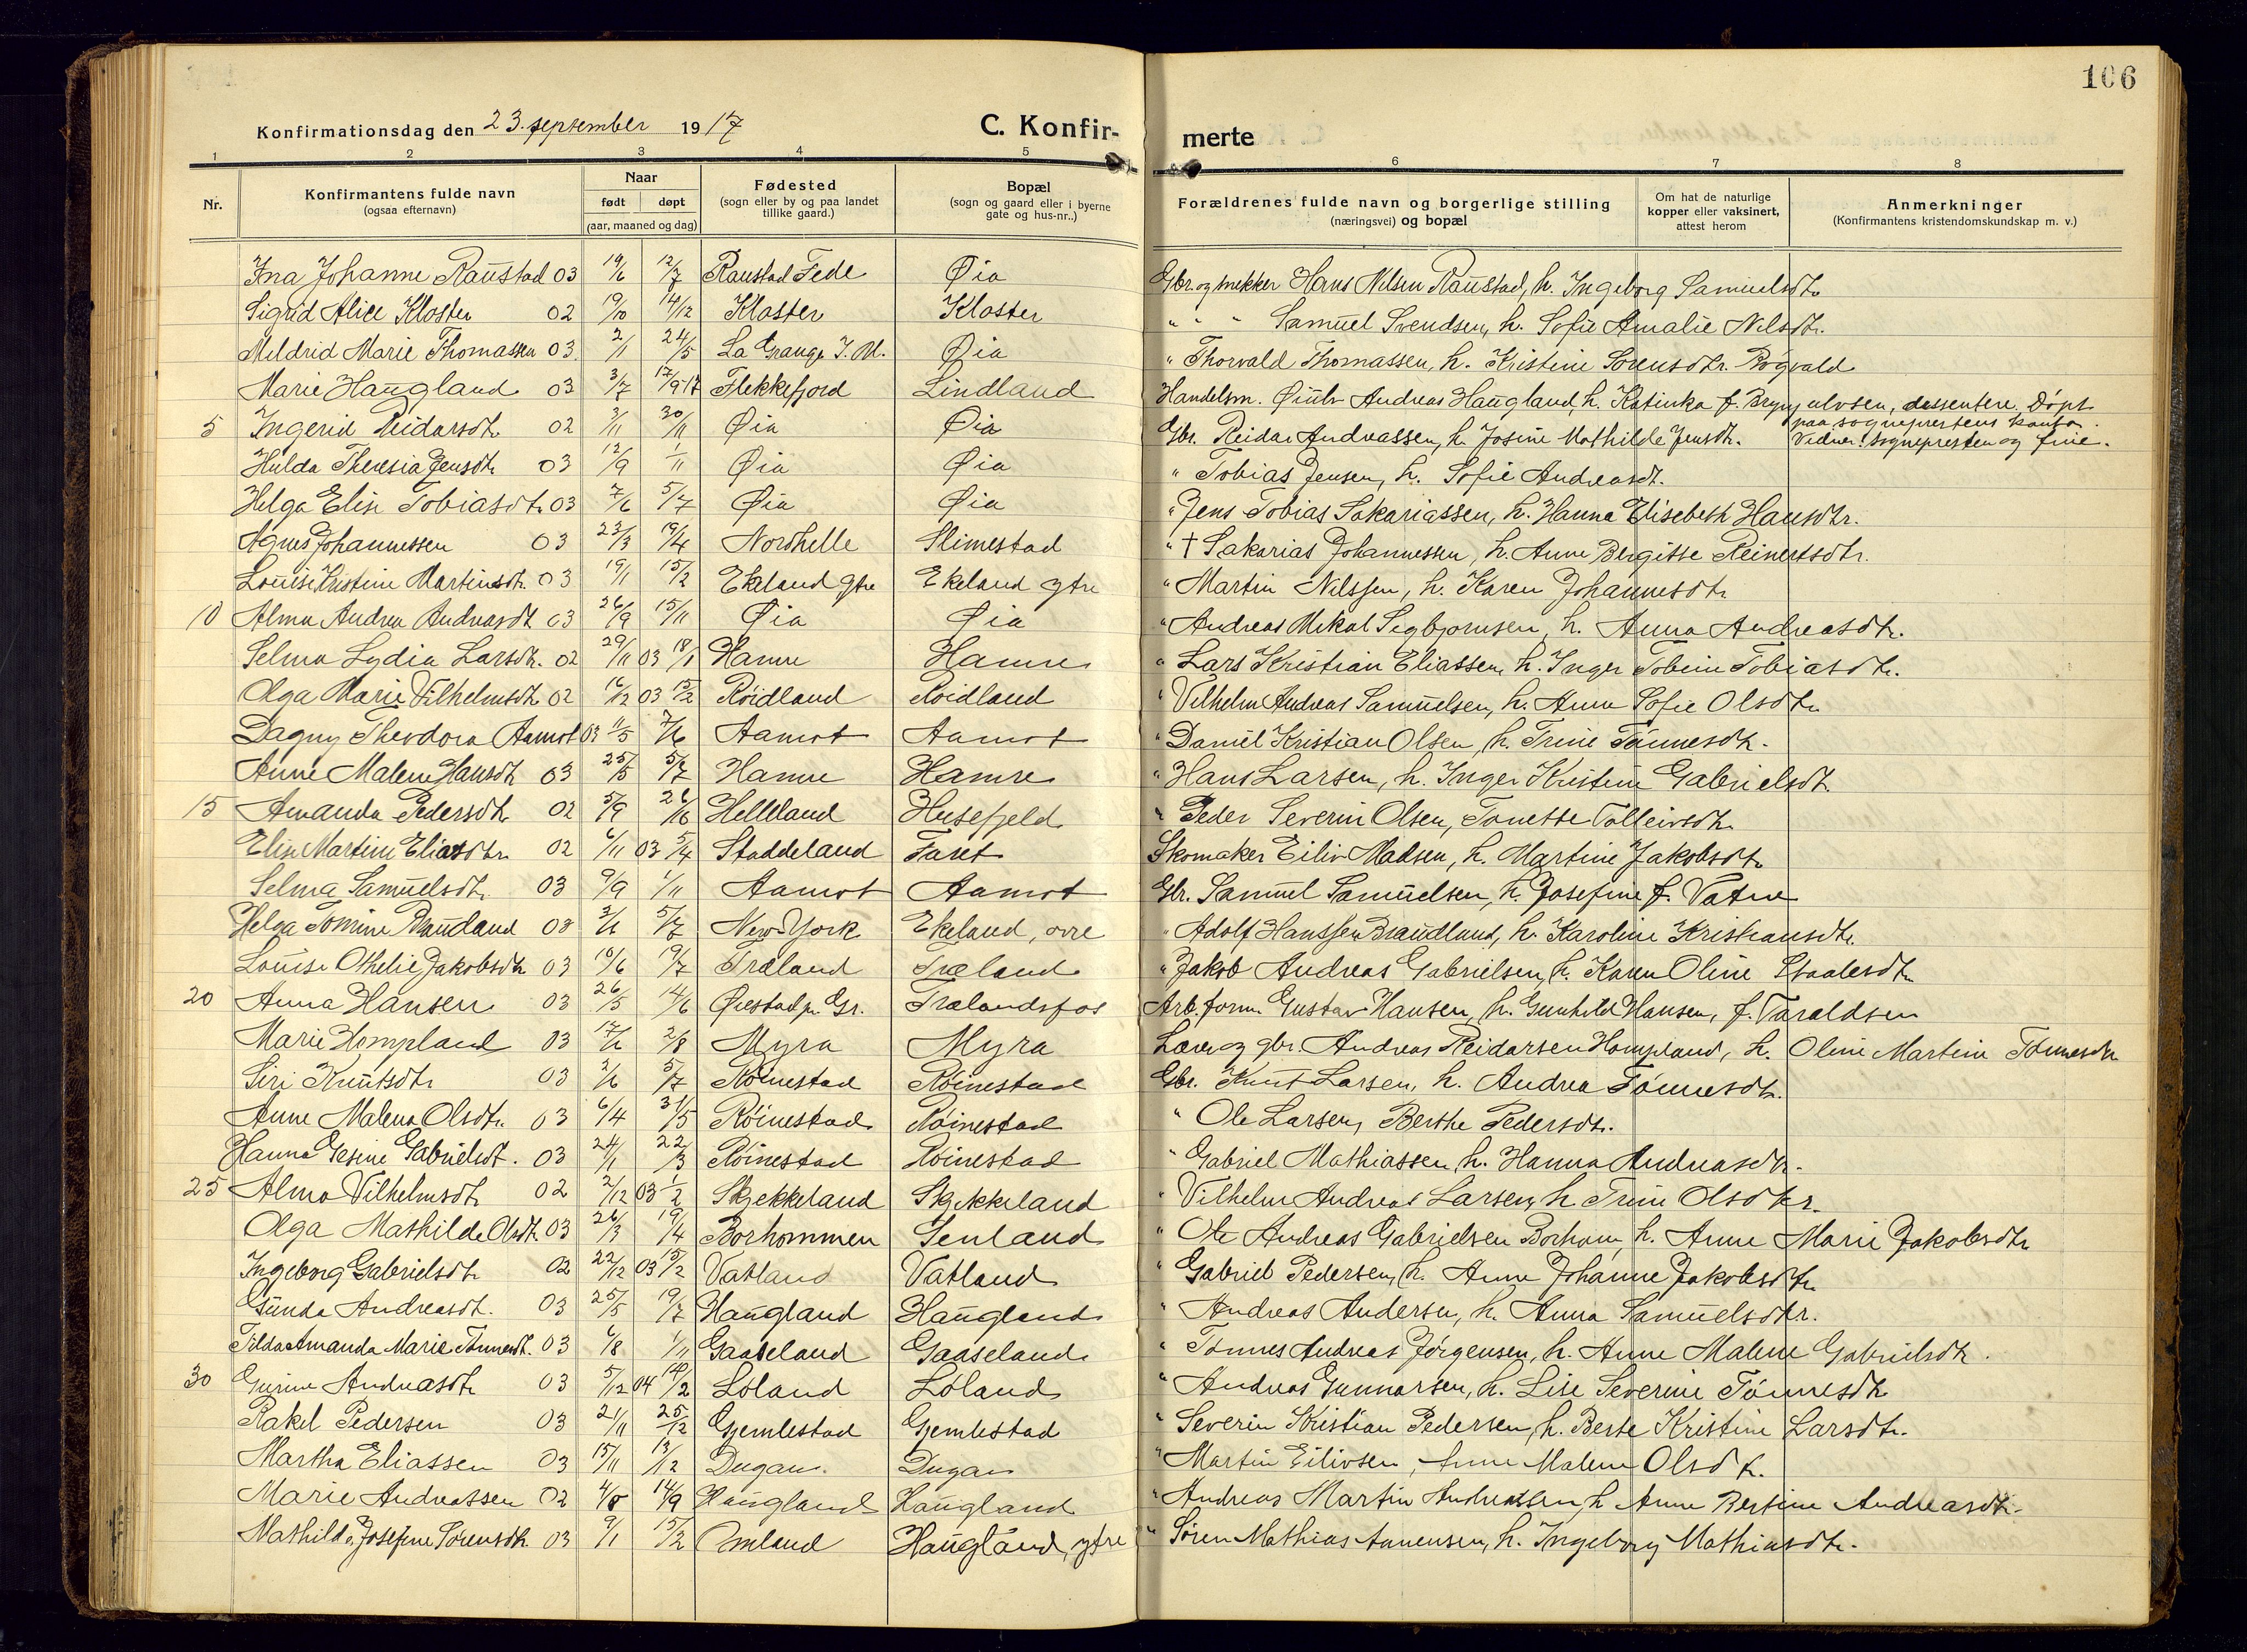 106
Konfirmationsdag den 23. september 1917 C. Konfir- merte
1 2 3 4 5 6 7 8
Nr. Konfirmantens fulde navn (ogsaa efternavn) Naar født døpt (aar, maaned og dag) Fødested (sogn eller by og paa landet tillike gaard.) Bopæl (sogn og gaard eller i byerne gate og hus-nr..) Forældrenes fulde navn og borgerlige stilling (næringsvei) og bopæl Om hat de naturlige kopper eller vaksinert, attest herom Anmerkninger (Konfirmantens kristendomskundskap m. v.)
Ina Johanne Raustad 03 19/6 12/7 Raustad Fede Øia Gbr. og snekker Hans Nilsen Raustad, h. Ingeborg Samuelsdtr
Sigrid Alice Kloster 02 19/10 14/12 Kloster Kloster " " " Samuel Svendsen, h. Sofie Amalie Nilsdtr.
Mildrid Marie Thomassen 03 2/1 24/5 La Grange I. Øia " Thorvald Thomassen, h. Kristine Sørensdtr. Rogvald
Marie Haugland 03 3/7 17/9 17 Flekkefjord Lindland Handelsm. Andreas Haugland, h. Katinka f. Brynjulvsen, dissentere. Døpt paa sogneprestens kontor.
5 Ingerid Reidarsdtr 02 3/11 30/11 Øia Øia Gbr. Reidar Andreassen, h. Josine Mathilde Jensdtr. Vidner: sognepresten og frue.
Hulda Theresia Jensdtr 03 12/9 1/11 Øia Øia " Tobias Jensen, h. Sofie Andreasdt.
Helga Elise Tobiasdtr 03 7/6 5/7 Øia Øia " Jens Tobias Sakariassen, h. Hanna Elisebeth Hansdtr.
Agnes Johannessen 03 23/3 19/4 Nordhelle Slimestad " † Sakarias Johannessen, h. Anne Bergitte Reinertsdtr.
Louise Kristine Martinsdtr. 03 19/1 15/2 Ekeland ytre Ekeland ytre " Martin Nilssen, h. Karen Johannesdtr
10 Alma Andrea Andreasdt 03 26/9 15/11 Øia Øia " Andreas Mikal Sigbjørnsen, h. Anna Andreasdtr.
Selma Lydia Larsdtr. 02 29/11 03 18/1 Hamre Hamre " Lars Kristian Eliassen, h. Inger Tobine Tobiasdtr.
Olga Marie Vilhelmsdtr 02 16/12 03 15/2 Røidland Røidland " Vilhelm Andreas Samuelsen, h. Anne Sofie Olsdtr
Dagny Theodora Aamot 03 11/5 7/6 Aamot Aamot " Daniel Kristian Olsen, h. Trine Tønnesdtr.
Anne Malene Hansdtr 03 25/5 5/7 Hamre Hamre " Hans Larsen, h. Inger Kristine Gabrielsdtr
15 Amanda Pedersdtr 02 5/9 26/10 Helleland Husefjeld " Peder Severin Olsen, Tonette Tolleivsdtr
Elise Martine Eliasdtr. 02 6/11 03 5/4 Staddeland Faret Skomaker Eiliv Madsen, h. Martine Jakobsdtr
Selma Samuelsdtr. 03 9/9 1/11 Aamot Aamot Gbr. Samuel Samuelsen, h. Josefine f. Vatne
Helga Tomine Braudland 03 3/6 5/7 New York Ekeland, øvre " Adolf Hanssen Braudland, h. Karoline Kristiansdtr.
Louise Othelie Jakobsdtr 03 10/6 19/7 Træland Træland " Jakob Andreas Gabrielsen, h. Karen Oline Staalesdtr
20 Anna Hansen 03 26/5 14/6 Øiestad pr. Gr. Trælandsfos Arb.form. Gustav Hansen, h. Gunhild Hansen, f. Taraldsen
Marie Hompland 03 17/6 2/8 Myra Myra Lærer og gbr. Andreas Reidarsen Hompland, h. Oline Martine Tønnesdtr
Siri Knutsdtr 03 2/6 5/7 Røinestad Røinestad Gbr. Knut Larsen, h. Andrea Tønnesdtr.
Anne Malena Olsdtr. 03 6/4 31/5 Røinestad Røinestad " Ole Larsen, Berthe Pedersdtr.
Hanna Gesine Gabrielsdt. 03 24/1 22/3 Røinestad Røinestad " Gabriel Mathiassen, h. Hanna Andreasdtr.
25 Alma Vilhelmsdtr 02 2/12 03 1/2 Skjekkeland Skjekkeland " Vilhelm Andreas Larsen, h Trine Olsdtr.
Olga Mathilde Olsdt. 03 26/3 19/4 Borhommen Senland " Ole Andreas Gabrielsen Borhom, h. Anne Marie Jakobsdtr
Ingeborg Gabrielsdtr 02 22/12 03 15/2 Vatland Vatland " Gabriel Pedersen, h. Anne Johanne Jakobsdtr.
Gunda Andreasdt. 03 25/5 19/7 Haugland Haugland " Andreas Andersen, h. Anna Samuelsdtr.
Tilda Amanda Marie Tønnesdt. 03 6/8 1/11 Gaaseland Gaaseland " Tønnes Andreas Jørgensen, h. Anne Malene Gabrielsdtr.
30 Gurine Andreasdtr 03 5/12 04 14/2 Løland Løland " Andreas Gunnarsen, h. Lise Severine Tønnesdtr
Rakel Pedersen 03 21/11 25/12 Gjemlestad Gjemlestad " Severin Kristian Pedersen, h. Berte Kristine Larsdtr.
Martha Eliassen 03 15/11 13/12 Dugan Dugan " Martin Eilivsen, Anne Malene Olsdtr.
Marie Andreassen 02 4/8 14/9 Haugland Haugland " Andreas Martin Andreassen, h Anne Bertine Andreasdtr.
Mathilde Josefine Sørensdtr. 03 9/1 15/2 Omland Haugland, ytre " Søren Mathias Annensen, h. Ingeborg Mathiasdtr.